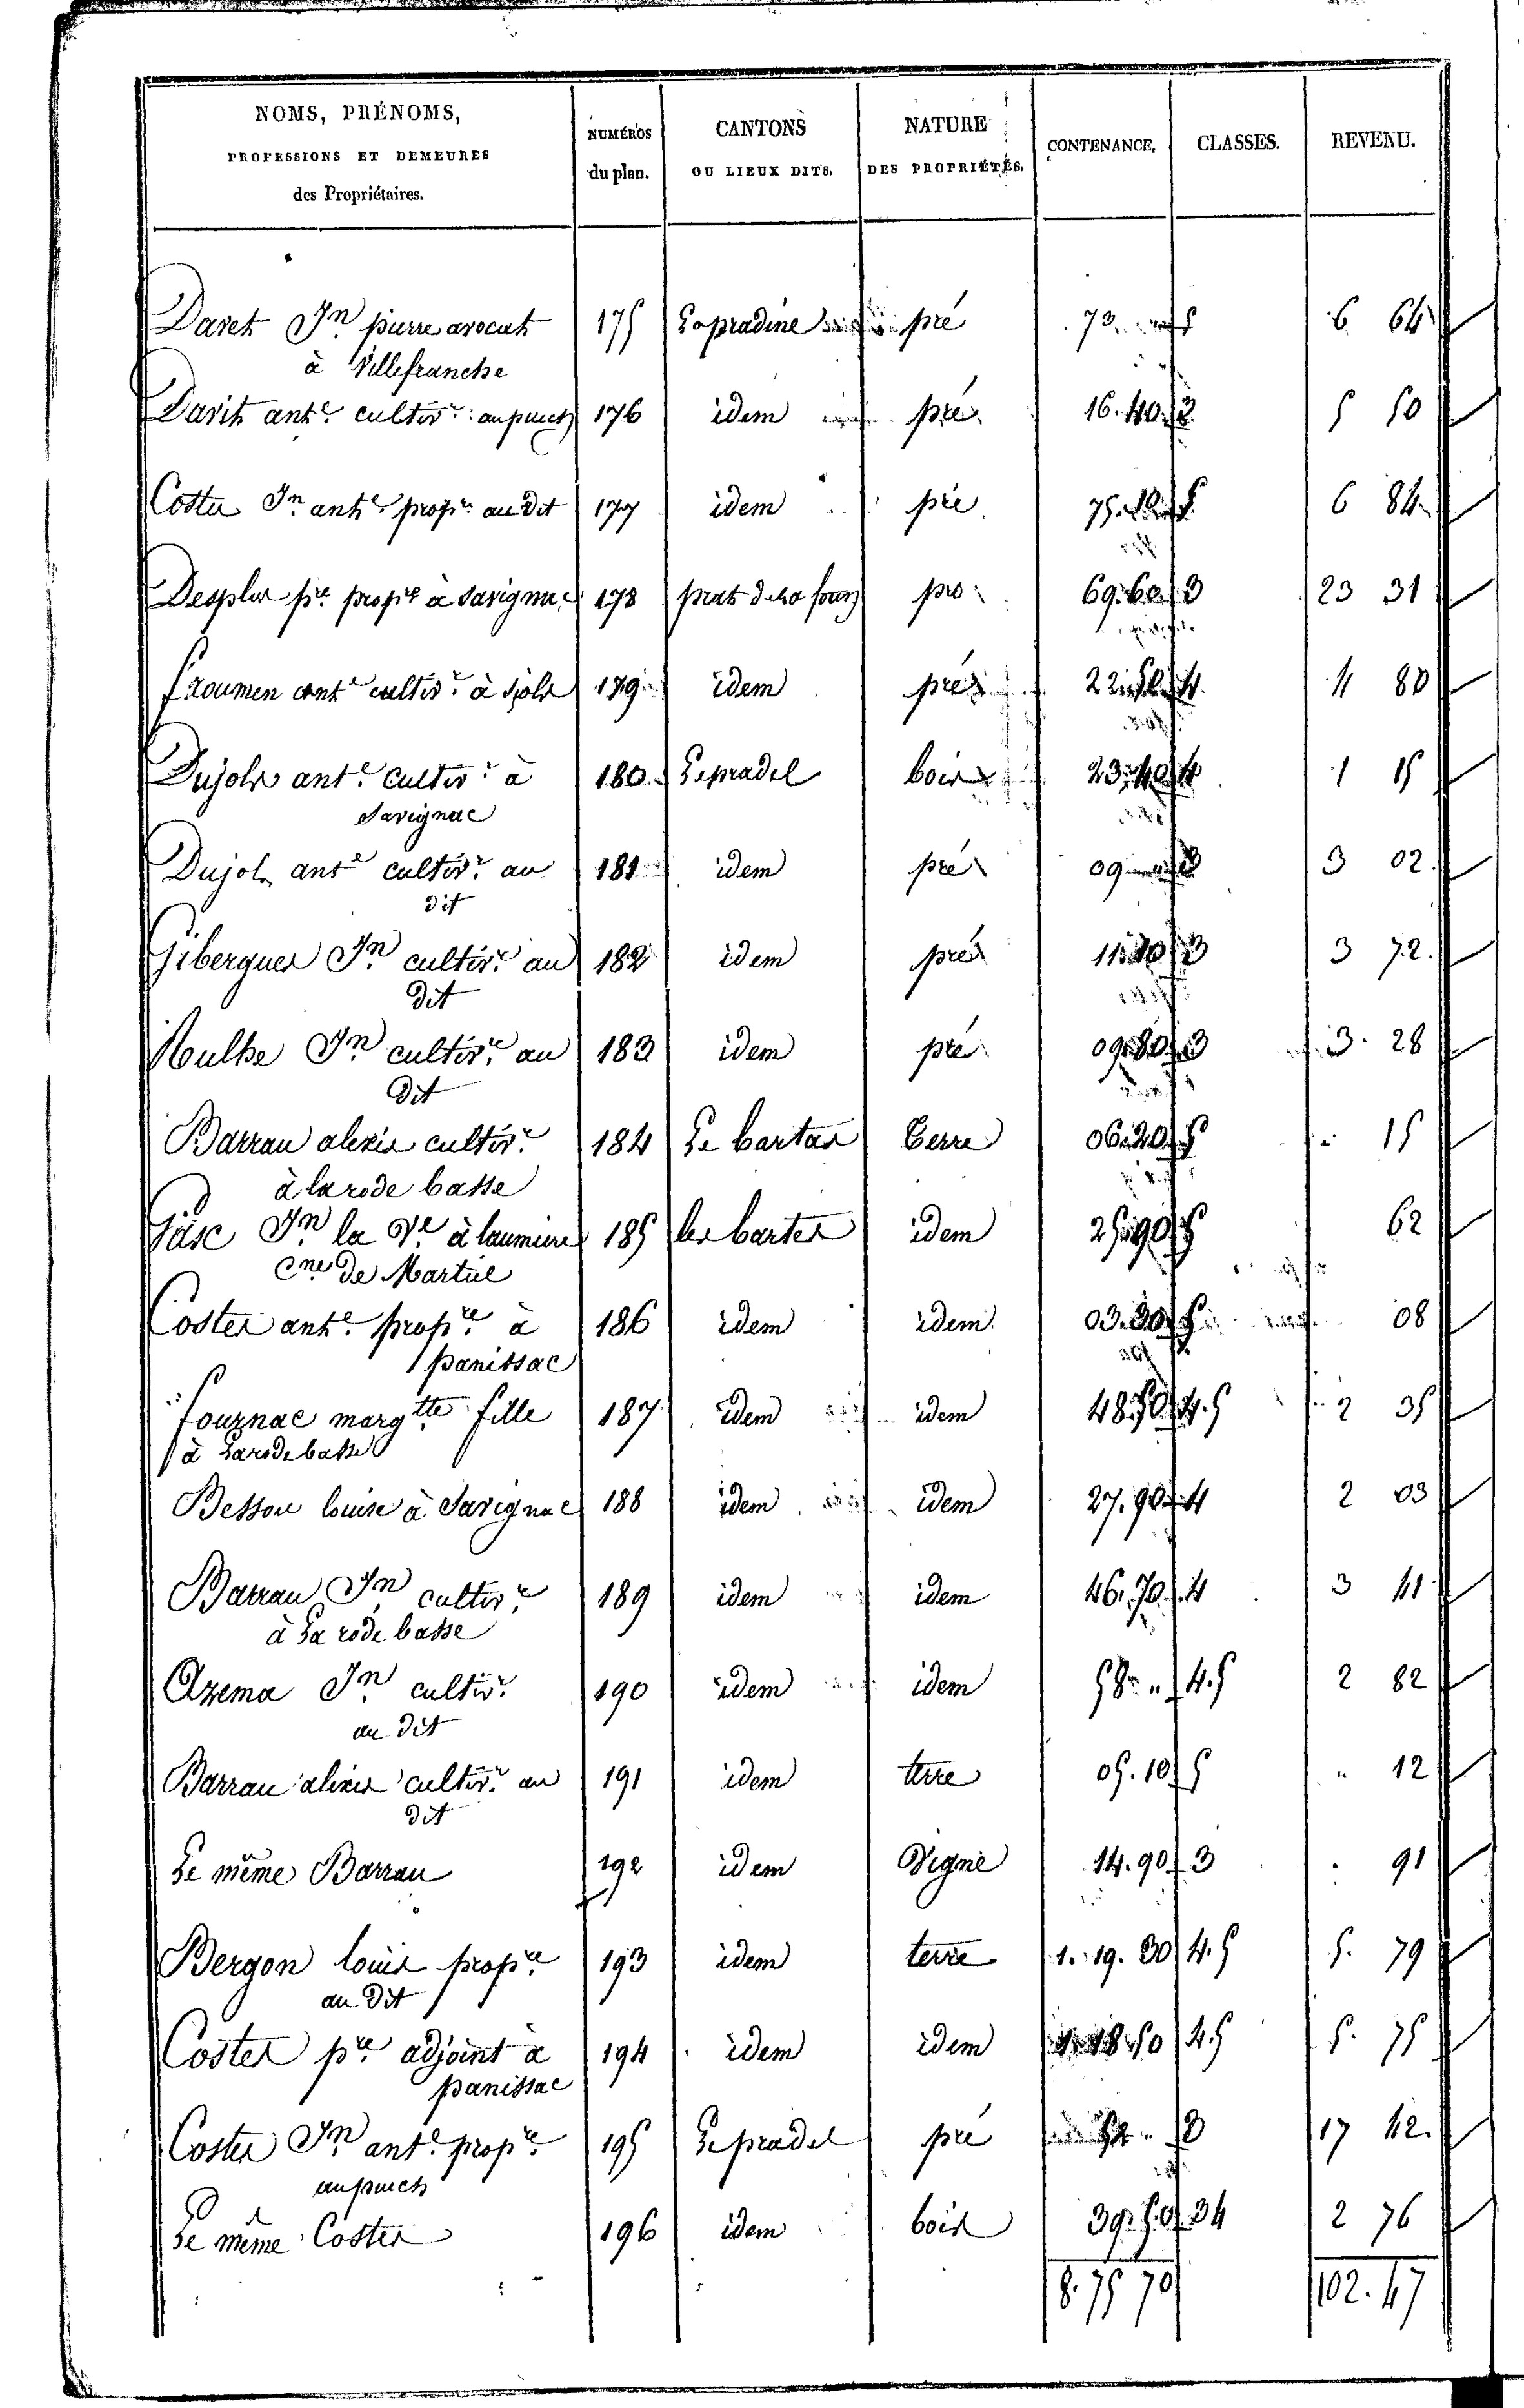 NOMS, PRÉNOMS, PROFESSIONS ET DEMEURES des Propriétaires. | NUMÉROS du plan. | CANTONS OU LIEUX DITS. | NATURE DES PROPRIÉTÉS. | CONTENANCE. | CLASSES. | REVENU.
Davet Jn pierre avocat 175 Lapradine pré 73 5 6 64
à Villefranche
Davit ante cultivr aupuech 176 idem pré 16.40 3 5 50
Costes Jn ante propre au dit 177 idem pré 75.10 5 6 84
Desplas pre propre à Savignac 178 prat de la fon pré 69.60 3 23 31
froumen ante cultivr à 179 idem pré 22.50 4 4 80
Dujols ante cultivr à 180 Lepradel bois 23.40 4 1 15
Savignac
Dujols ante cultivr au 181 idem pré 09 3 3 02
dit
Gibergues Jn cultivr au 182 idem pré 11.10 3 3 72
dit
Jn cultivr au 183 idem pré 09.80 3 3 28
dit
Barrau alexis cultivr 184 Le bartas terre 06.20 5 " 15
à la rode basse
Gasc Jn la Ve à laumiere 185 les bartes idem 25.90 5 62
Cne de Martiel
Costes ante propre à 186 idem idem 03.30 5 08
panissac
fournac margtte fille 187 idem idem 48.50 4.5 2 35
à Larode basse
Bessou louise à Savignac 188 idem idem 27.90 4 2 03
Barrau Jn cultivr 189 idem idem 46.70 4 3 41
à La rode basse
Azema Jn cultivr 190 idem idem 58 " 4.5 2 82
au dit
Barrau alexis cultivr au 191 idem terre 05.10 5 " 12
dit
Le même Barrau 192 idem Vigne 14.90 3 . 91
Bergon louis propre 193 idem terre 1.19.30 4.5 5. 79
au Dit
Costes pre adjoint à 194 idem idem 1.18.50 4.5 5. 75
panissac
Costes Jn ante propre 195 Lepradel pré 52 " 3 17 42.
aupuech
Le même Costes 196 idem bois 39.50 34 2 76
8.75 70 102.47